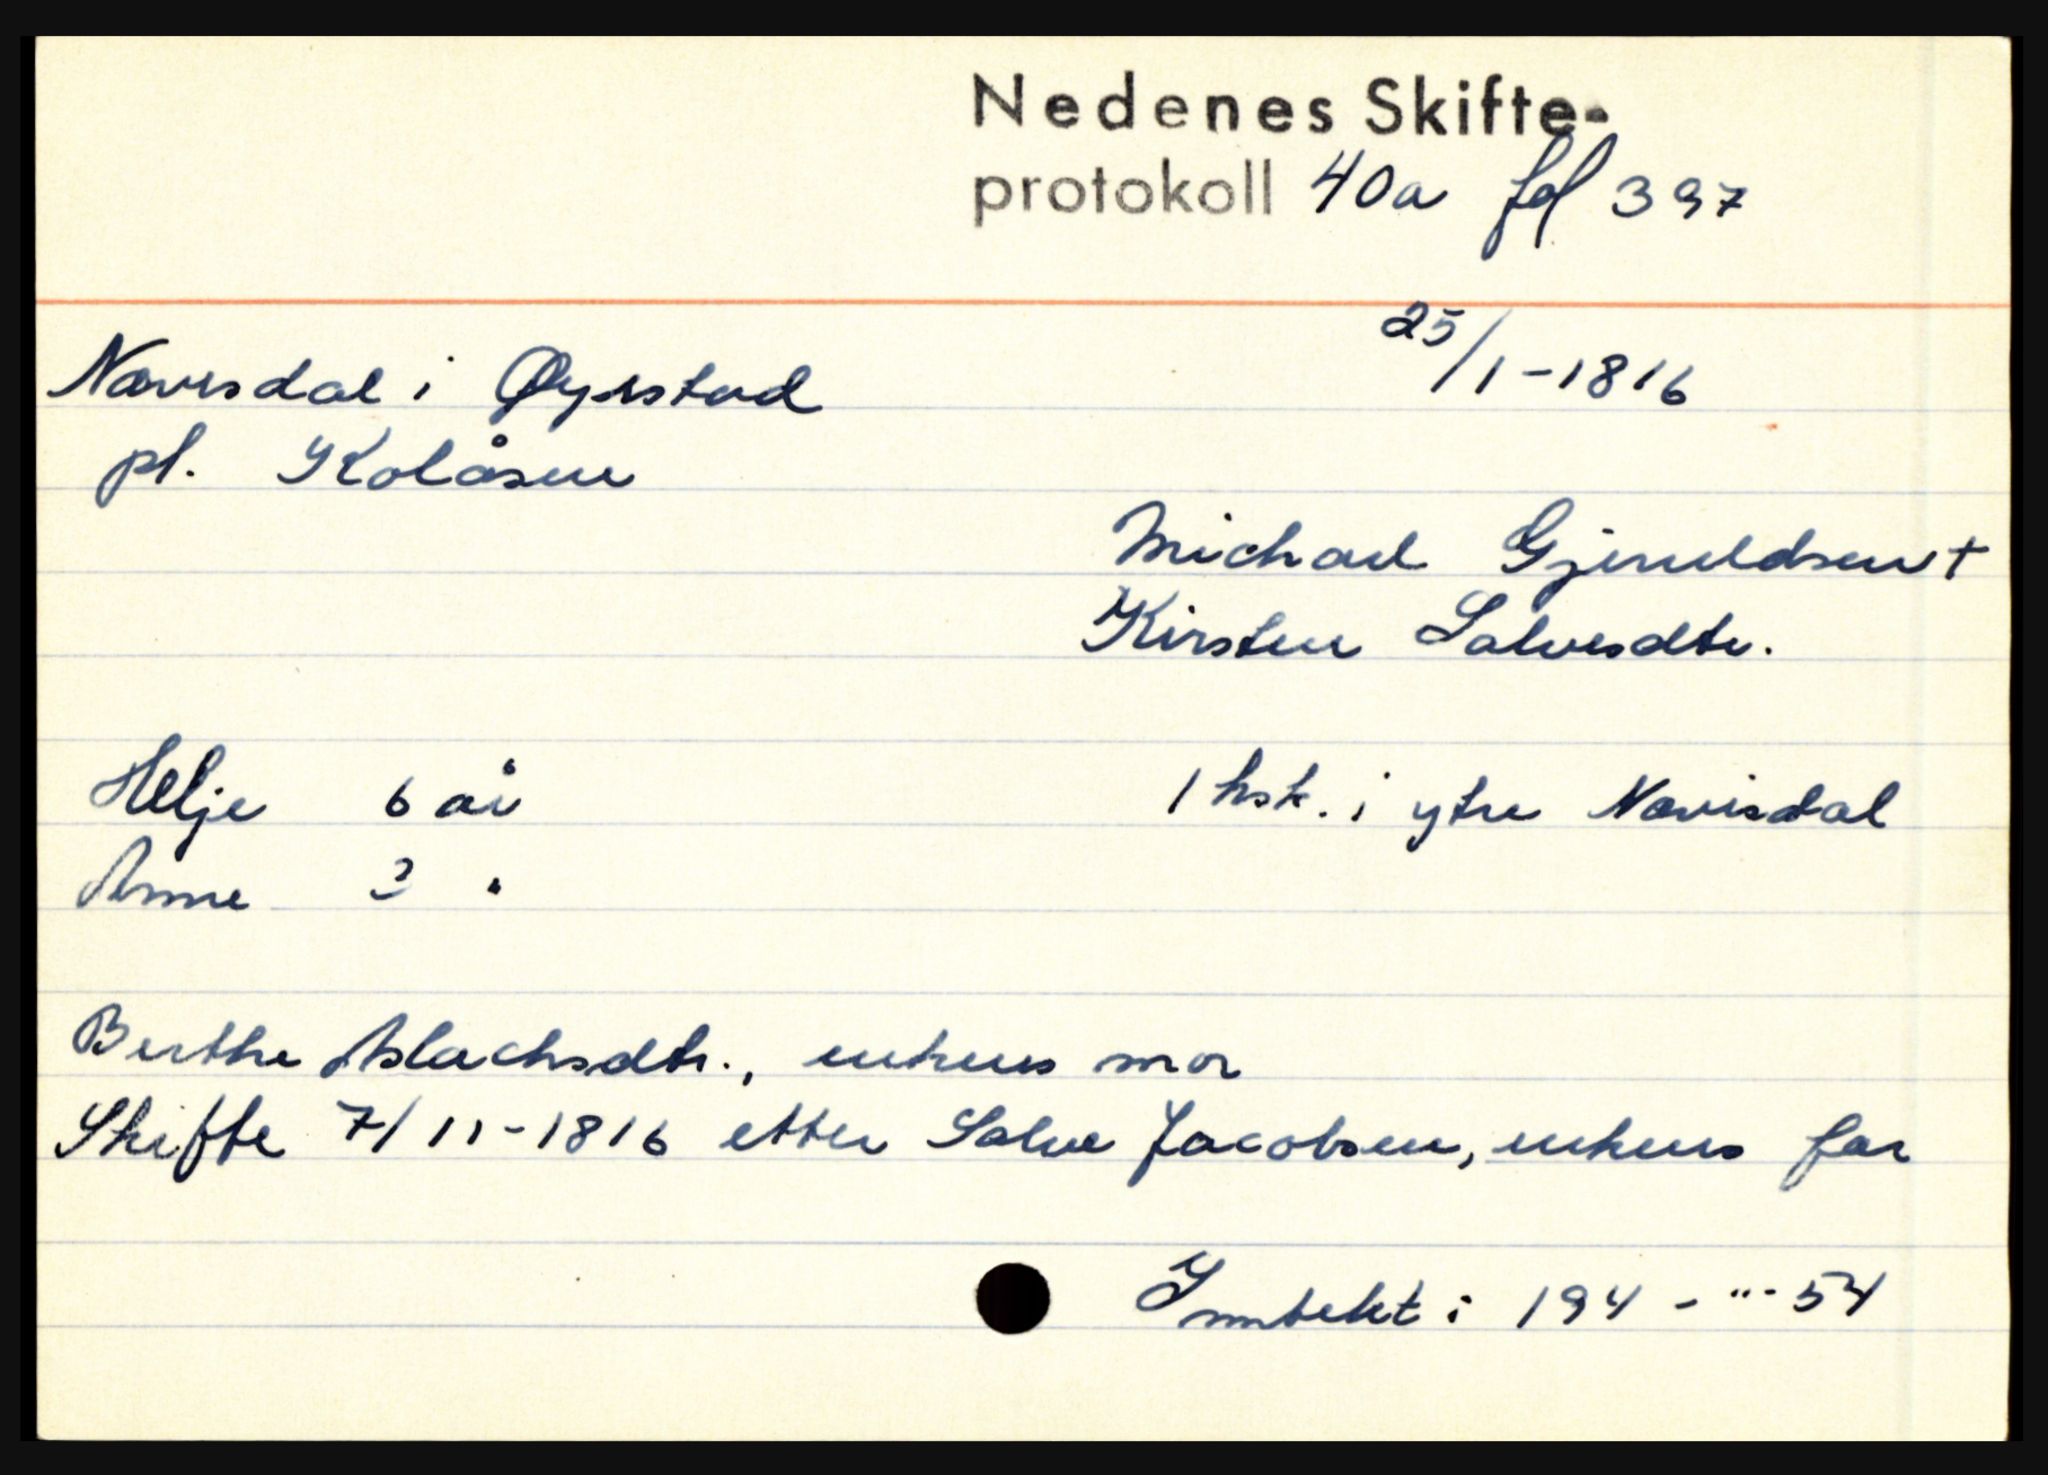 Nedenes Skifte-
protokoll 40a fol 397
25/1-1816
Nævesdal i Øyestad
pl. Kolåsen
Michael Gjeruldsen +
Kirsten Salvesdtr.
Helje 6 år 1 hsk. i ytre Nævisdal
Anne 3 "
Berthe Aslachsdtr., enkens mor
Skifte 7/11-1816 etter Salve Jacobsen, enkens far
Inntekt i 194 - "' 54